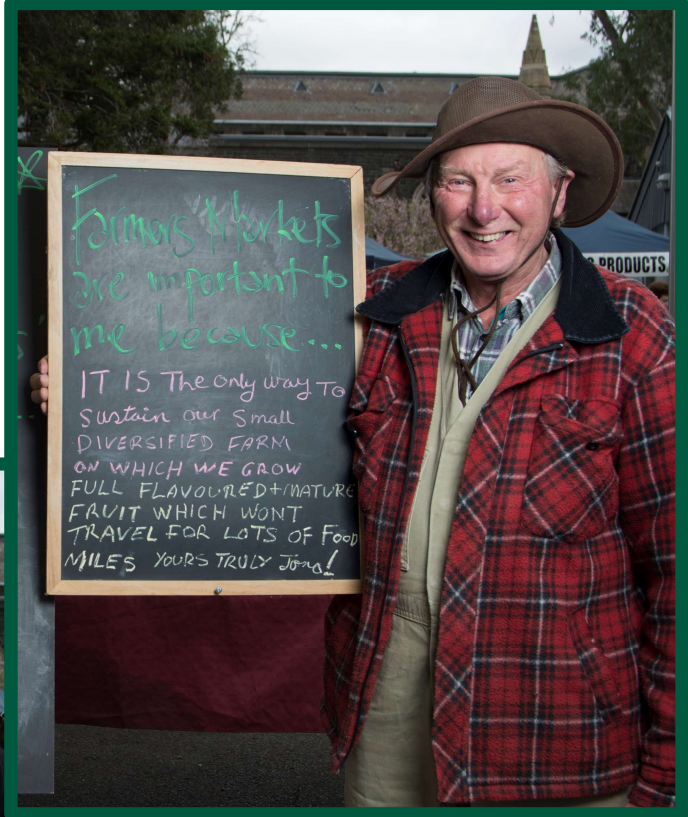 Farmers' Markets
are important to
me because...
IT IS The only way To
Sustain our Small
DIVERSIFIED FARM
ON WHICH WE GROW
FULL FLAVOURED + MATURE
FRUIT WHICH WONT
TRAVEL FOR LOTS OF FOOD
MILES YOURS TRULY
PRODUCTS